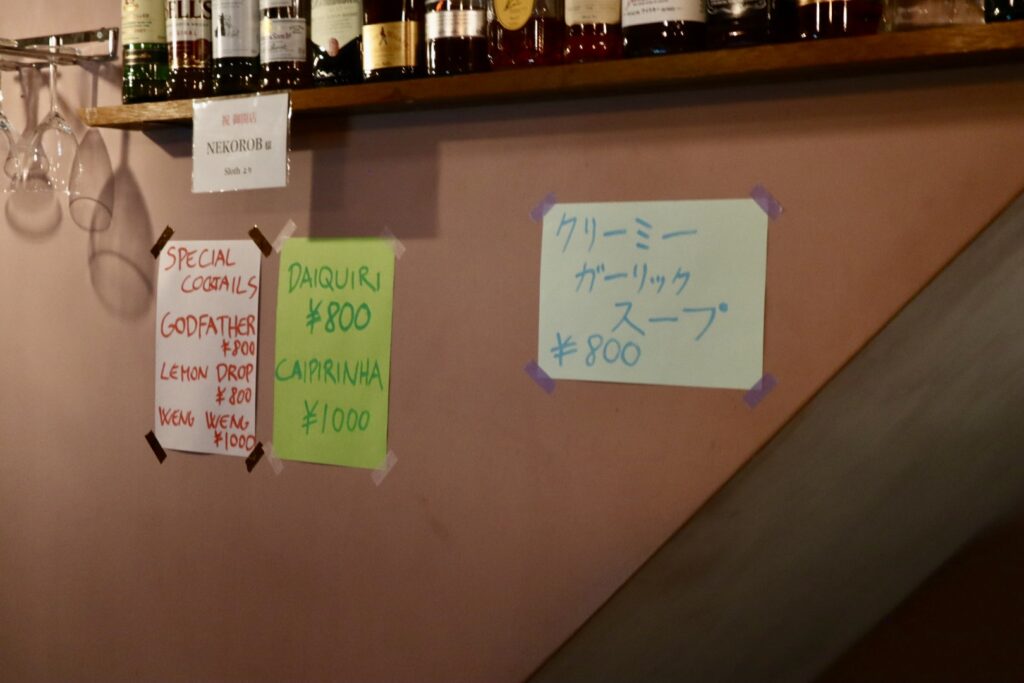 祝 御開店
NEKOROB 様
Sloth より
SPECIAL
COCKTAILS
GODFATHER
¥800
LEMON DROP
¥800
WENG WENG
¥1000
DAIQUIRI
¥800
CAIPIRINHA
¥1000
クリーミー
ガーリック
スープ
¥800